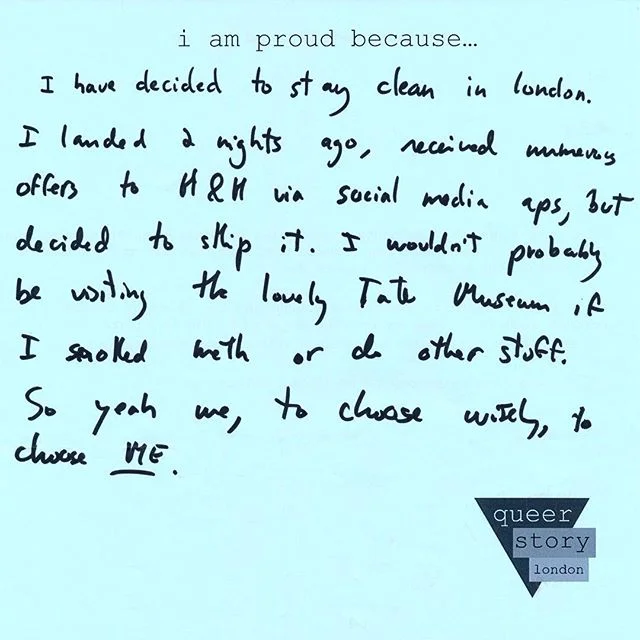 i am proud because…
I have decided to stay clean in london.
I landed 2 nights ago, received numerous
offers to H&H via social media aps, but
decided to skip it. I wouldn't probably
be visiting the lovely Tate Museum if
I smoked meth or do other stuff.
So yeah me, to choose wisely, to
choose ME.
queer
story
london